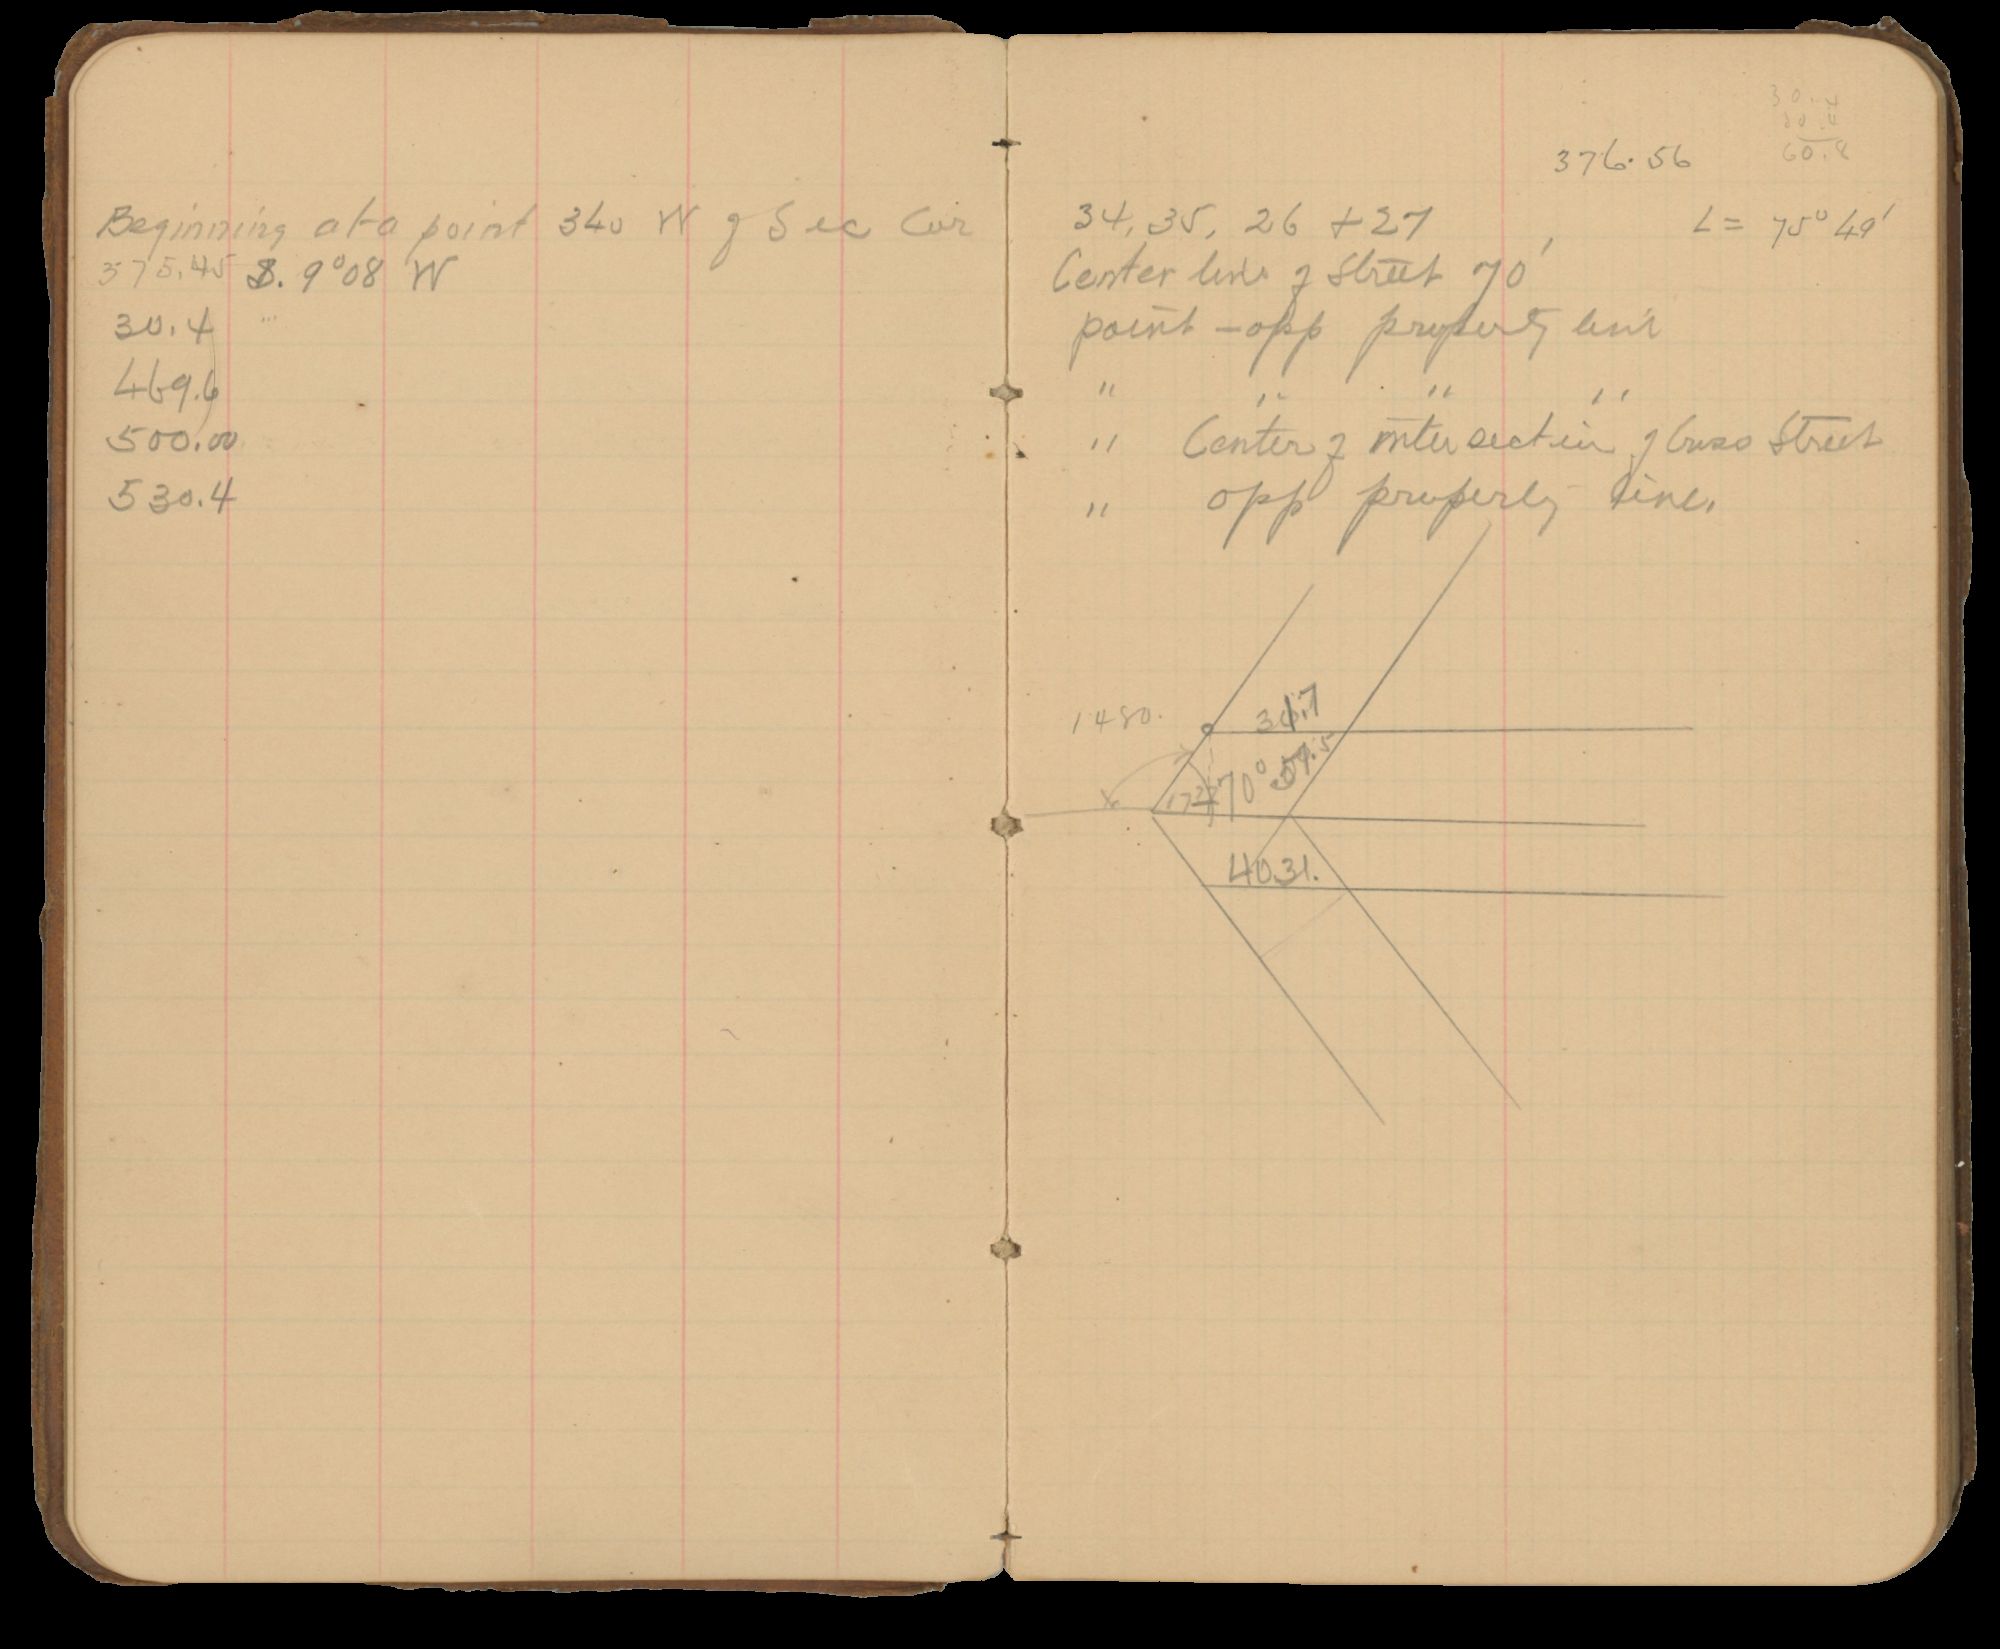 Beginning at a point 340 W of Sec Cor
375.45 S. 9°08 W
30.4 "
469.6
500.00
530.4
30.4
30.4
60.8
376.56
34, 35, 26 + 27
L = 75° 49'
Center line of Street 70'
point - opp property line
" " " "
" Center of intersection of Cross Street
" opp property line.
1480.
70°
40.31.